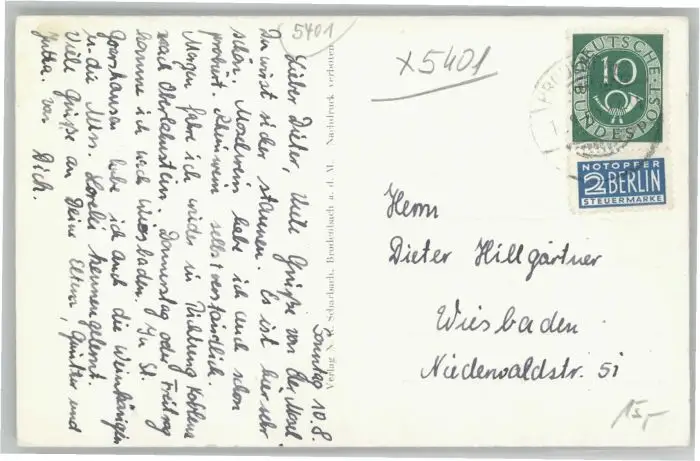 5401
x5401
Sonntag 10.8.
Lieber Dieter, Viele Grüße von der Mosel
Du wirst sicher staunen. Es ist hier sehr
schön, Moselwein habe ich auch schon
probiert, Rheinwein selbstverständlich.
Morgen fahre ich wieder in Richtung Koblenz
nach Oberlahnstein. Donnerstag oder Freitag
komme ich nach Wiesbaden. In St.
Goarshausen habe ich auch die Weinkönigin
u. die Miss. Lorelei kennengelernt.
Viele Grüße an Deine Eltern, Günther und
Jutta. von Dich.
Verlag Scharbach, Brodenbach a. d. M. Nachdruck verboten
DEUTSCHE BUNDESPOST
10
NOTOPFER
2 BERLIN
STEUERMARKE
Herrn
Dieter Hillgärtner
Wiesbaden
Niederwaldstr. 5i
15,-